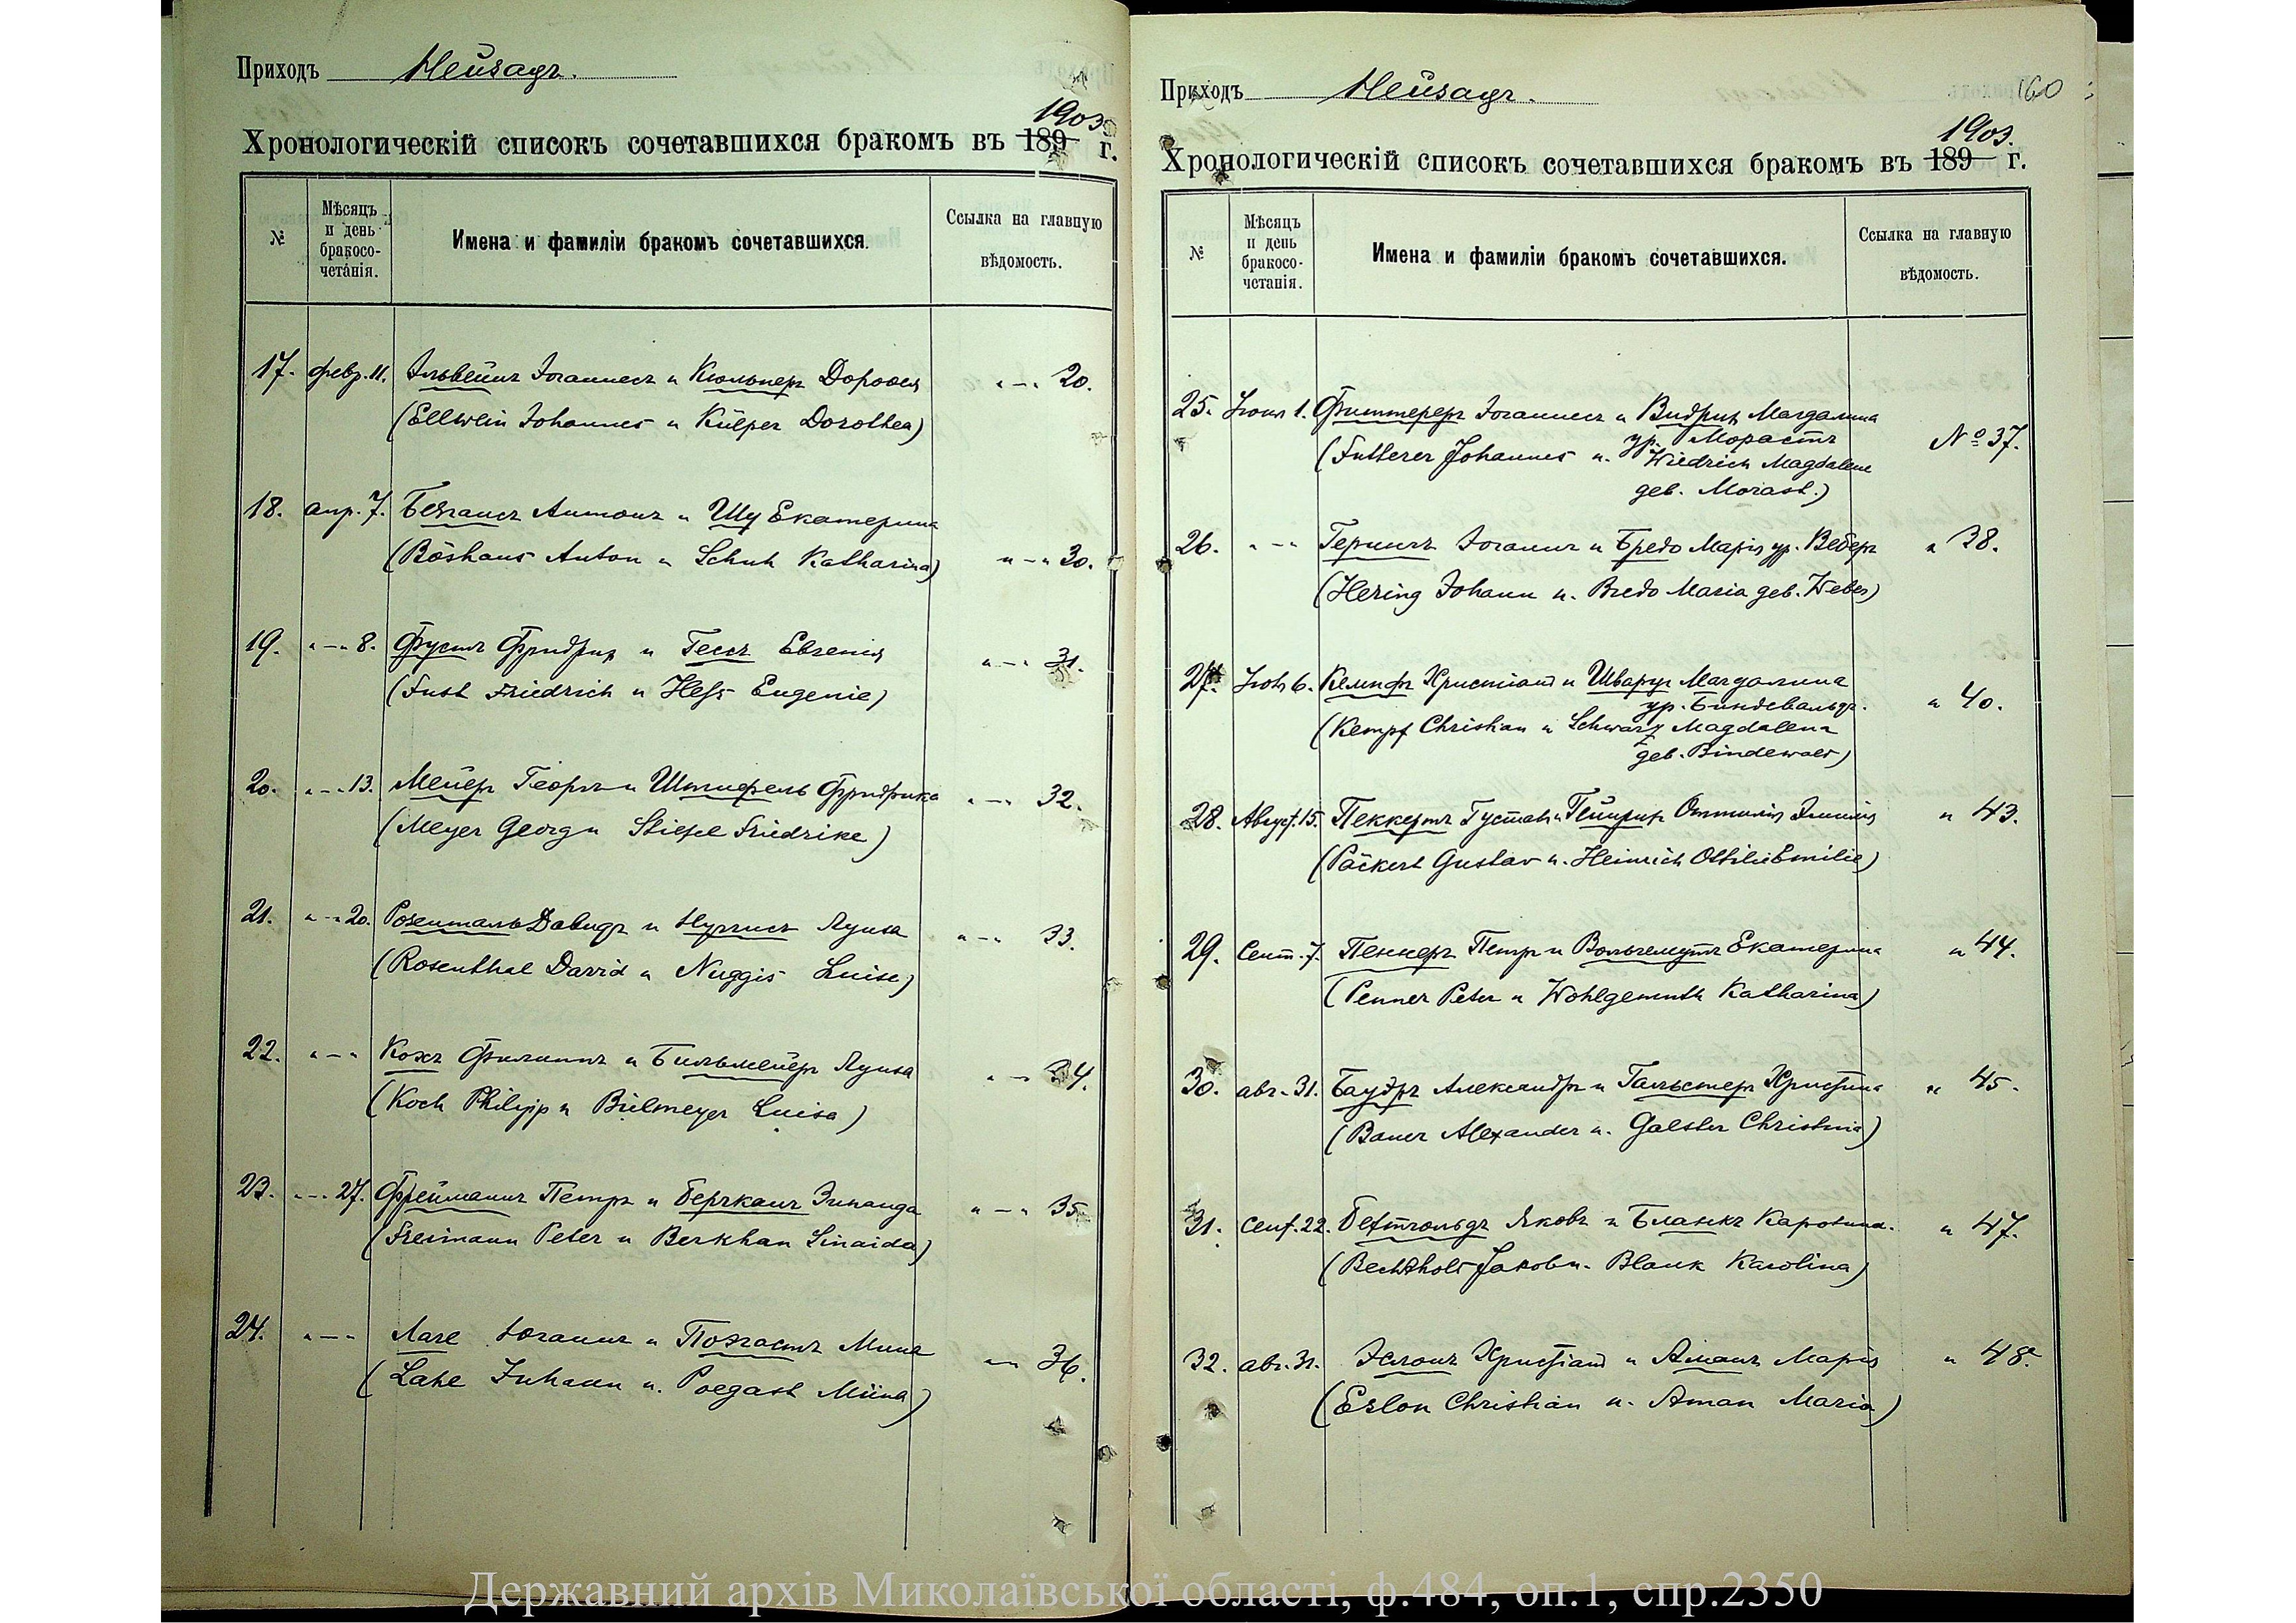 Приходъ Нейзацъ.
Хронологическій списокъ сочетавшихся бракомъ въ 189 1903 г.
№
Мѣсяцъ и день бракосо-четанія.
Имена и фамиліи бракомъ сочетавшихся.
Ссылка на главную вѣдомость.
17. февр. 11. Эльвейнъ Іоганнесъ и Кюльперъ Доровея „ — „ 20.
(Ellwein Johannes u Külper Dorothea)
18. апр. 7. Безгаусъ Антонъ и Шу Екатерина
(Böshaus Anton u Schuh Katharina) „ — „ 30.
19. „ — „ 8. Фустъ Фридрих и Гессъ Евгенія „ — „ 31.
(Fust Friedrich u Heß Eugenie)
20. „ — „ 13. Мейеръ Георгъ и Штифель Фридрика „ — „ 32.
(Meyer Georg u Stiefel Friedrike)
21. „ — „ 20. Розенталь Давидъ и Нуггисъ Луиза „ — „ 33.
(Rosenthal David u Nuggis Luise)
22. „ — „ Кохъ Филиппъ и Бильмейеръ Луиза „ — „ 34.
(Koch Philipp u Bilmeyer Luisa)
23. „ — „ 27. Фрейманнъ Петръ и Беркканъ Зинаида „ — „ 35.
(Freimann Peter u Berkhan Sinaida)
24. „ — „ Лаге Іоганнъ и Поэгастъ Мина „ — „ 36.
(Lahe Juhann u. Poegast Miina)
Приходъ Нейзацъ. 160
Хронологическій списокъ сочетавшихся бракомъ въ 189 1903. г.
№
Мѣсяцъ и день бракосо-четанія.
Имена и фамиліи бракомъ сочетавшихся.
Ссылка на главную вѣдомость.
25. Іюня 1. Футтереръ Іоганнесъ и Видрих Магдалина
ур. Морастъ № 37.
(Futterer Johannes u. Wiedrich Magdalene
geb. Morast.)
26. „ — „ Герингъ Іоганнъ и Бредо Марія ур. Веберъ „ 38.
(Hering Johann u. Bredo Maria geb. Weber)
27. Іюля 6. Кемпфъ Христіанъ и Шварцъ Магдалина
ур. Биндевальдъ. „ 40.
(Kempf Christian u Schwarz Magdalena
geb. Bindewald)
28. Август. 15. Пеккертъ Густавъ и Гейнрих Оттилія Эмилія „ 43.
(Päckert Gustav u. Heinrich Ottilie Emilie)
29. Сент. 7. Пеннеръ Петръ и Вольгемутъ Екатерина „ 44.
(Penner Peter u Wohlgemuth Katharina)
30. авг. 31. Бауэръ Александръ и Гальстеръ Христина „ 45.
(Bauer Alexander u. Galster Christina)
31. Сент. 22. Бехтгольдъ Яковъ и Бланкъ Каролина. „ 47.
(Bechtholt Jakob u. Blank Karolina)
32. авг. 31. Эслонъ Христіанъ и Аманъ Марія „ 48.
(Eslon Christian u. Aman Maria)
Державний архів Миколаївської області, ф.484, оп.1, спр.2350